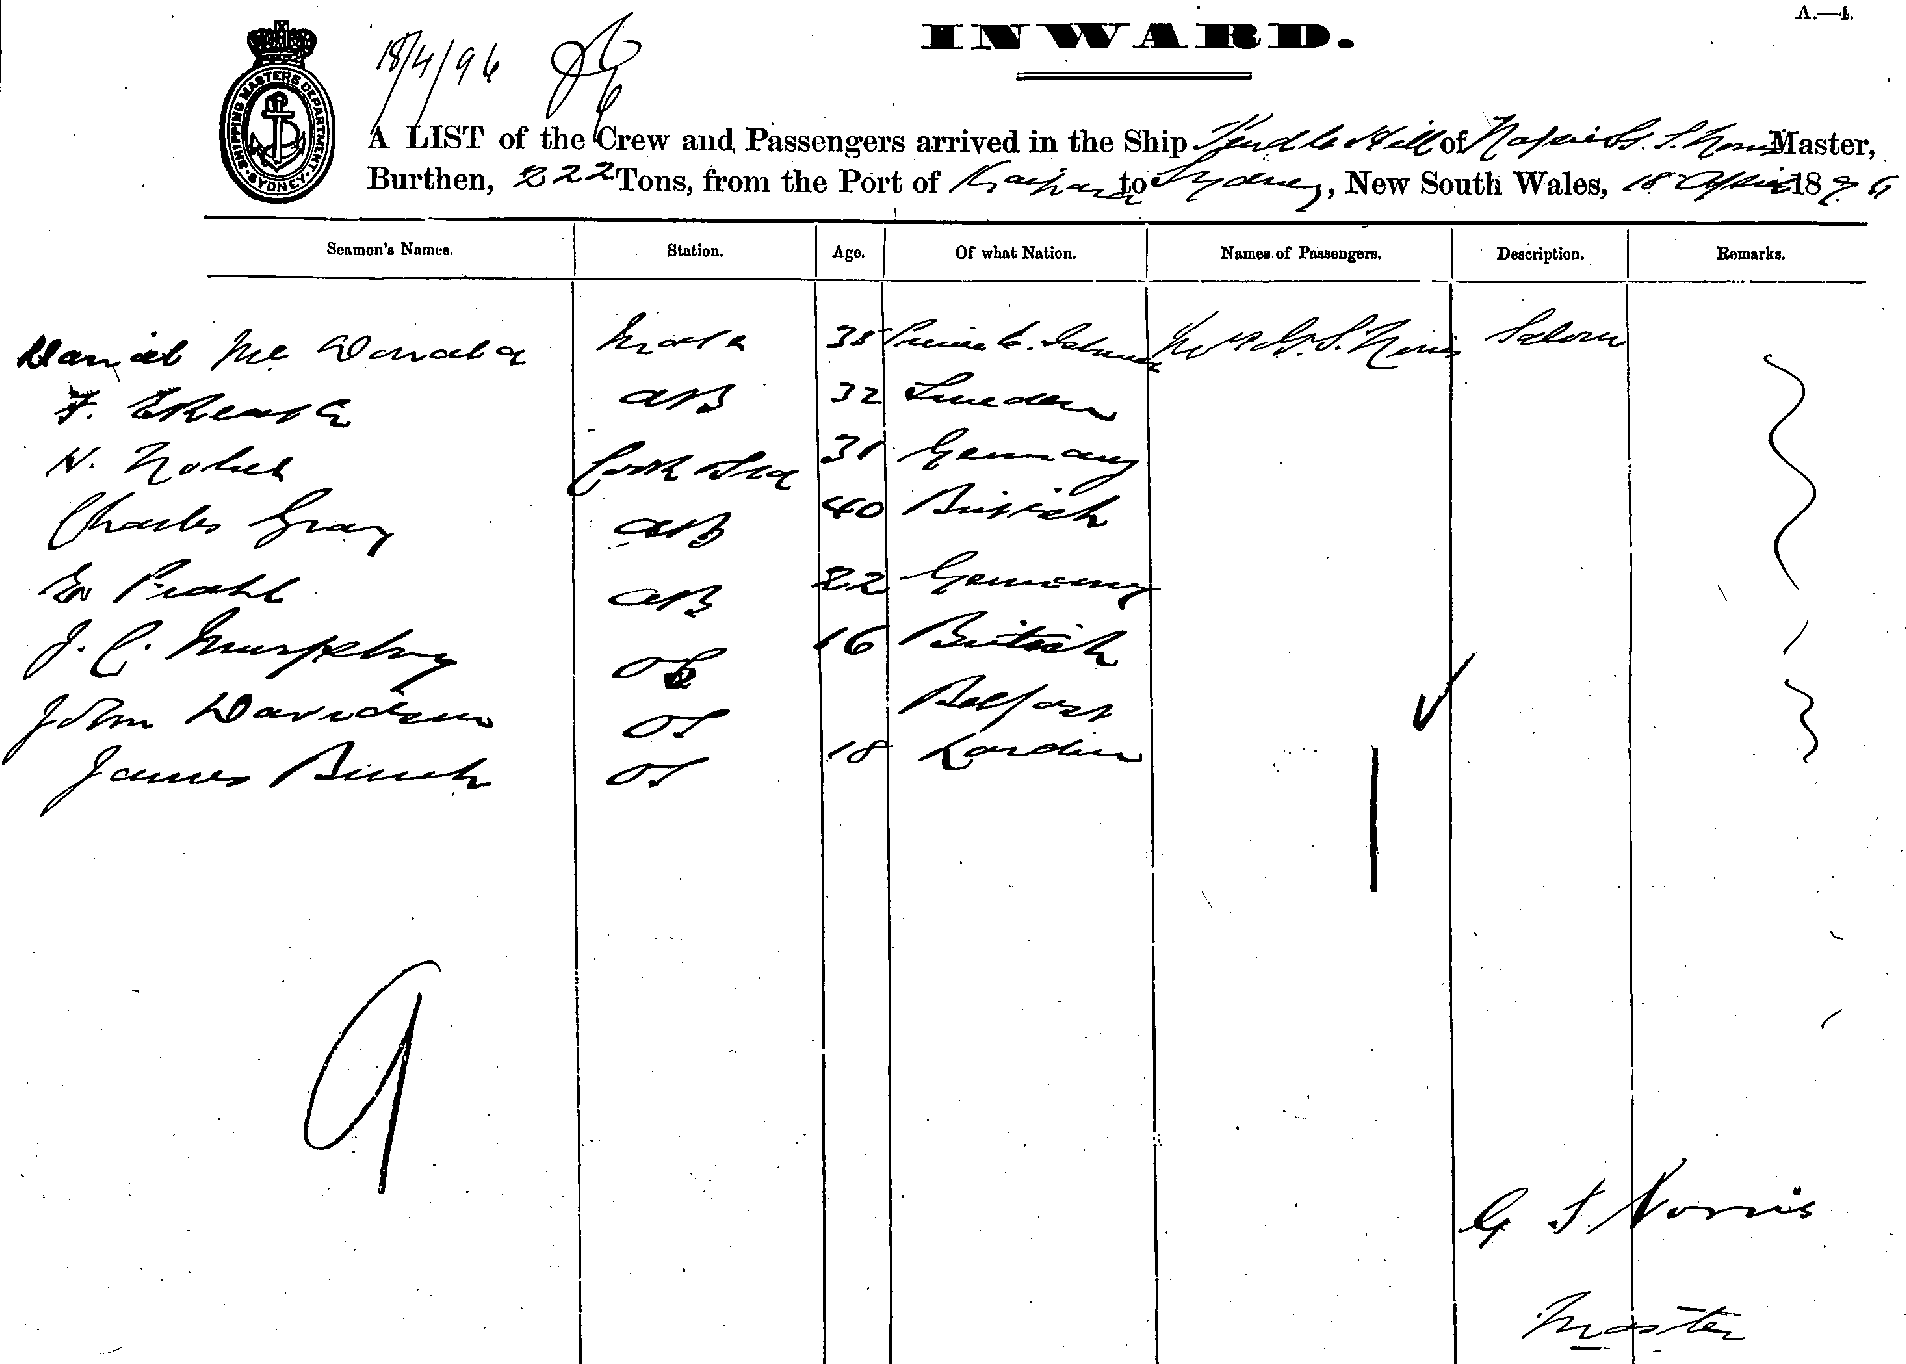 A.—4.
INWARD.
18/4/96
SHIPPING MASTERS DEPARTMENT. SYDNEY.
A LIST of the Crew and Passengers arrived in the Ship Hill of Napier G. S. Norris Master,
Burthen, 222 Tons, from the Port of Kaipara to Sydney, New South Wales, 18 April 1896
Seamen's Names. Station. Age. Of what Nation. Names of Passengers. Description. Remarks.
Daniel Mc Donald Mate 38 Prince E. Island Mrs G. S. Norris Saloon
F. AB 32 Sweden
N. Cook & Std 31 Germany
Charles Gray AB 40 British
Prahl AB 22 Germany
J. C. Murphy OS 16 British
John Davidson OS Belfast
James OS 18 London
9
G S Norris
Master